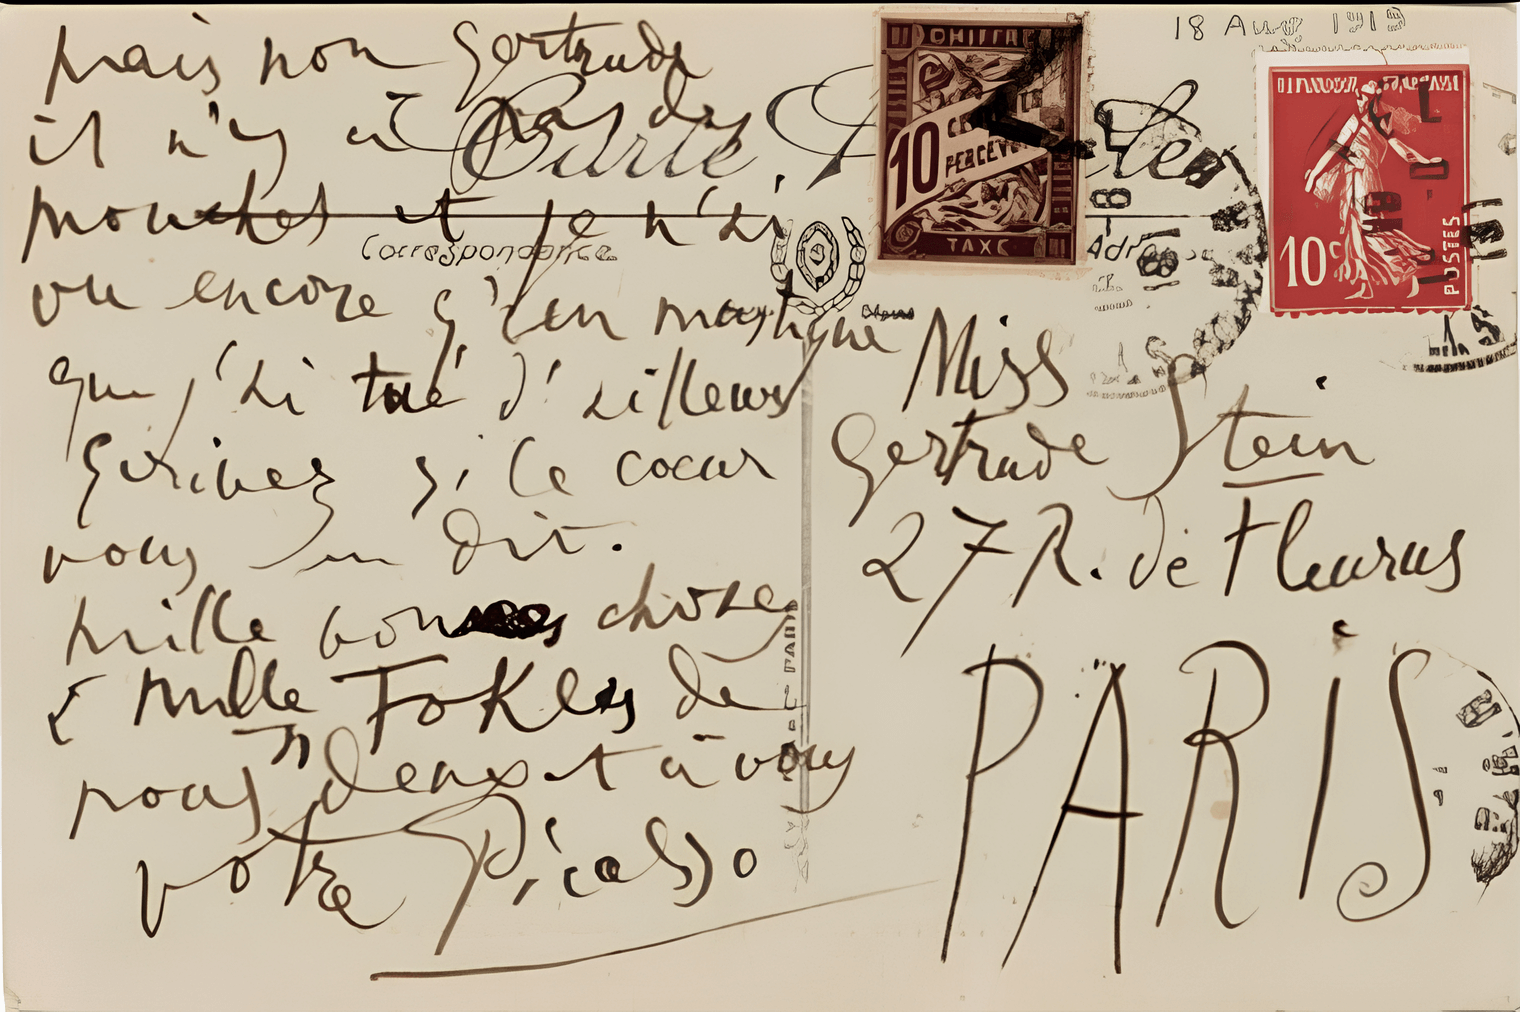 mais non Gertrude
il n'y a pas des
mouches et je n'ai
vu encore q'un mostique
que j'ai tué d'ailleurs
Ecrivez si le coeur
vous en dit.
mille bonnes choses
e mille FoKles de
nous deux et à vous
votre Picasso
Carte
Correspondance
18 Aug 191
CHIFFRE
10
PERCEVOIR
TAXE
10c
POSTES
Miss
Gertrude Stein
27 R. de Fleurus
PARiS